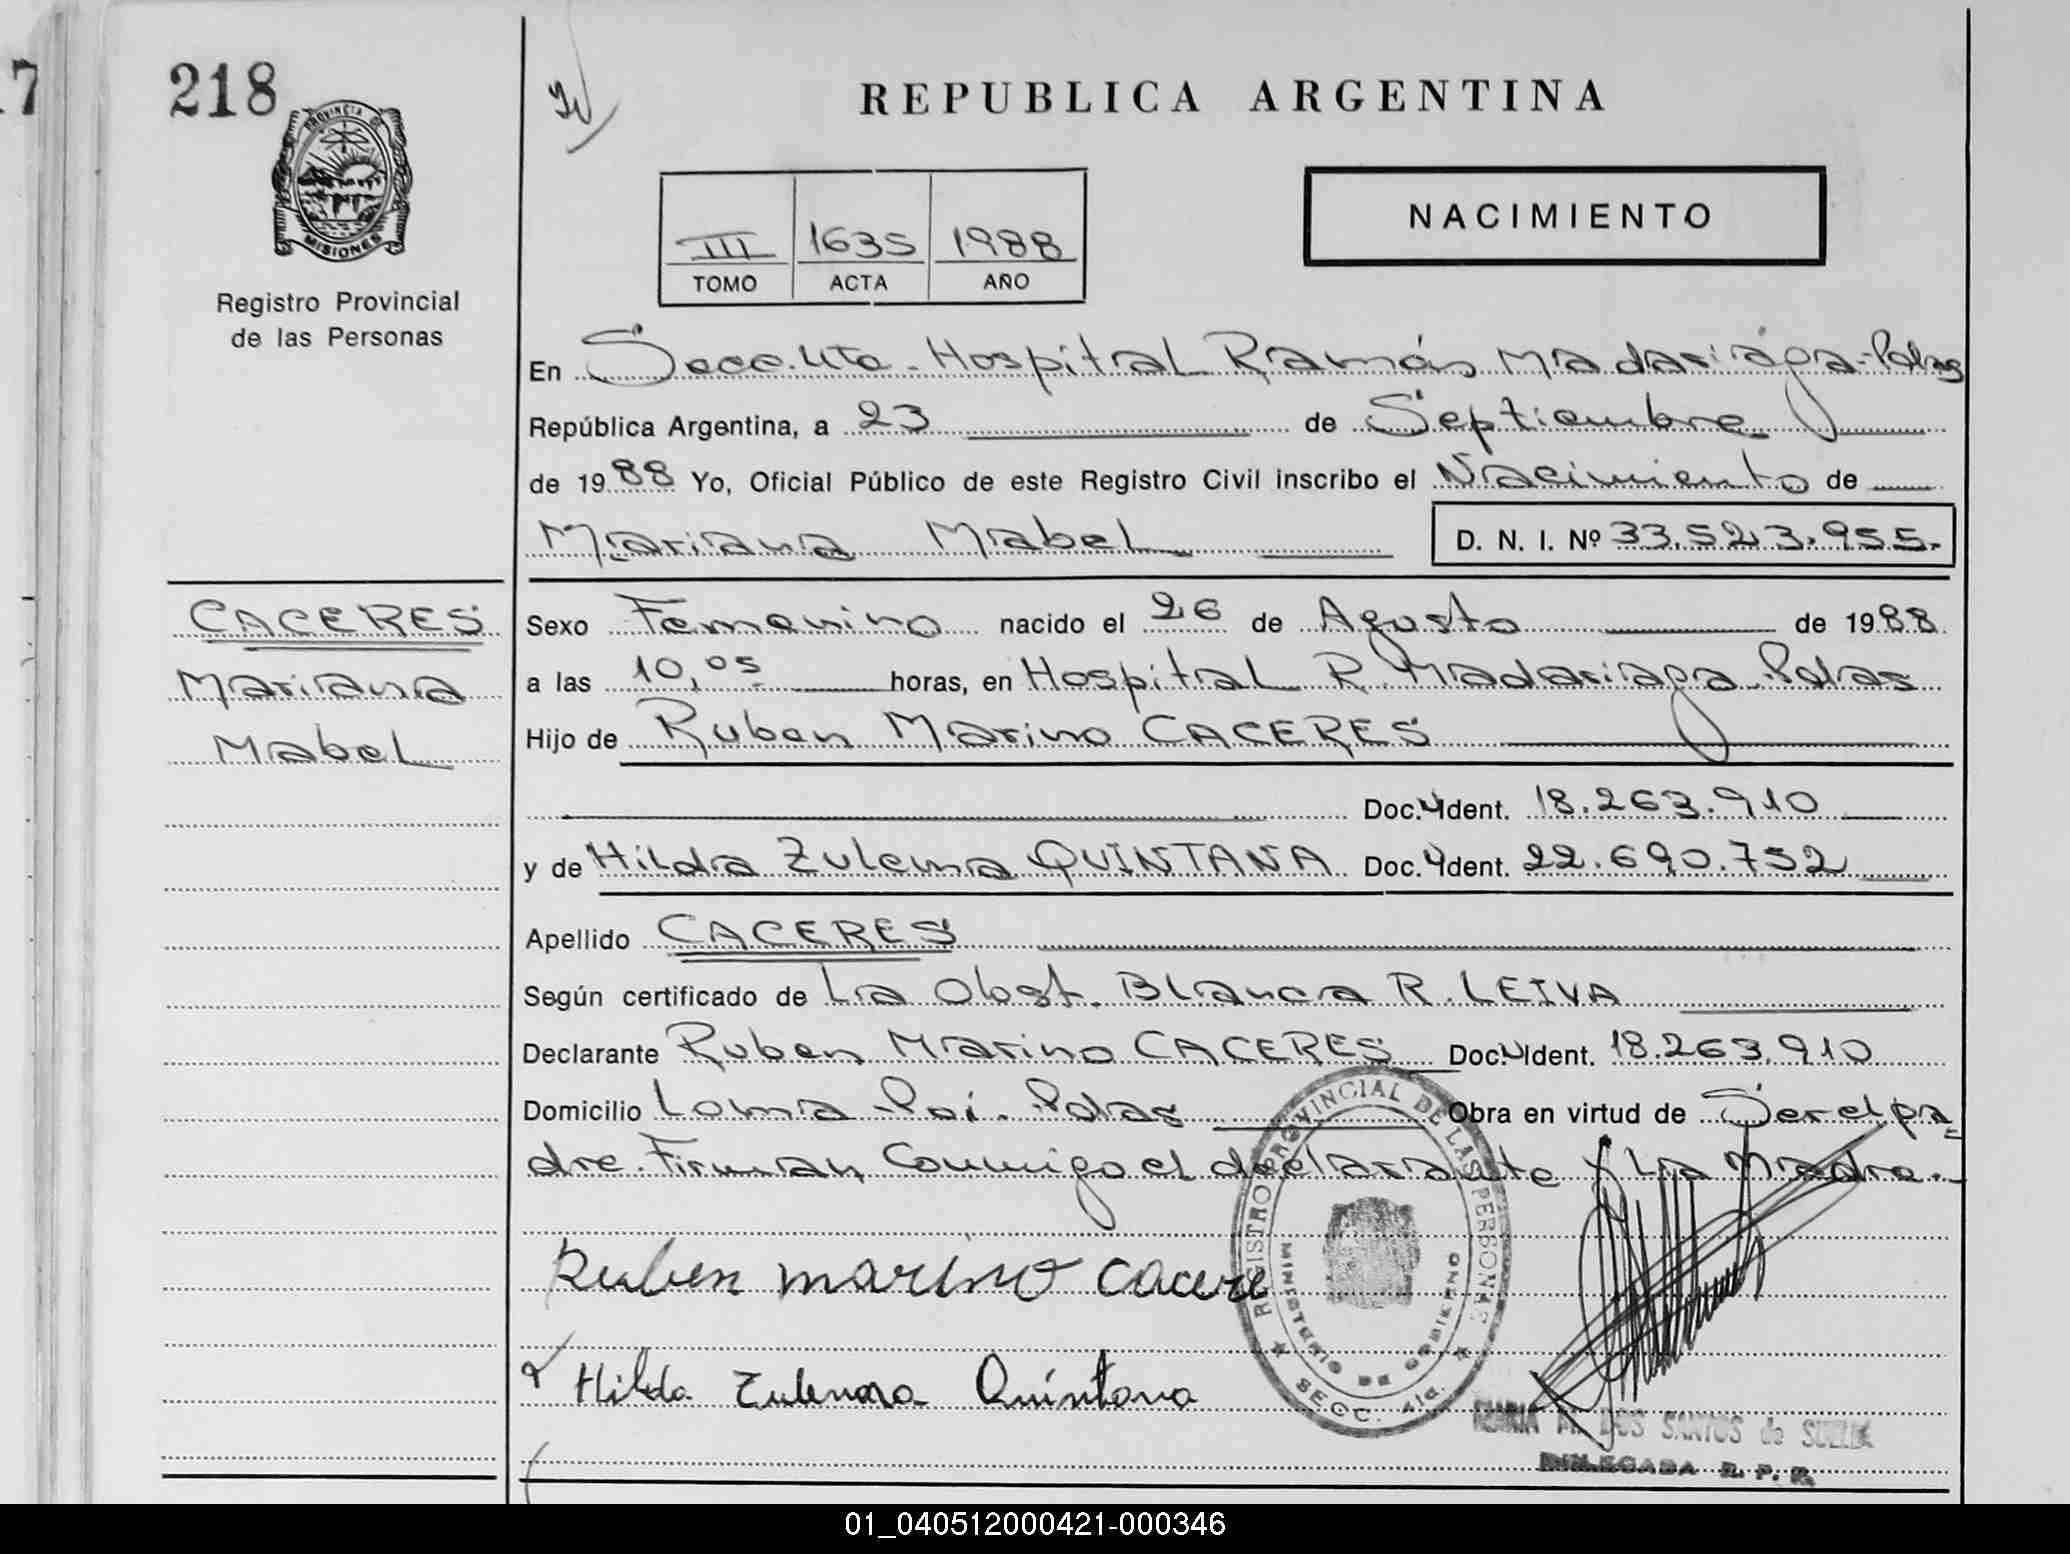 17
218
PROVINCIA DE
MISIONES
Registro Provincial
de las Personas
REPUBLICA ARGENTINA
III 1635 1988
TOMO ACTA AÑO
NACIMIENTO
En Secc. 4ta - Hospital Ramón Madariaga - Pdas
República Argentina, a 23 de Septiembre
de 1988 Yo, Oficial Público de este Registro Civil inscribo el Nacimiento de
Mariana Mabel D. N. I. Nº 33.523.955.-
CACERES
Mariana
Mabel
Sexo Femenino nacido el 26 de Agosto de 1988
a las 10,05 horas, en Hospital R. Madariaga - Pdas
Hijo de Ruben Marino CACERES
Doc. Ident. 18.263.910
y de Hilda Zulema QUINTANA Doc. Ident. 22.690.752
Apellido CACERES
Según certificado de La Obst. Blanca R. LEIVA
Declarante Ruben Marino CACERES Doc. Ident. 18.263.910
Domicilio Loma Poi - Pdas Obra en virtud de Ser el pa=
dre. Firman Conmigo el declarante y La Madre.-
Ruben marino Cacere
Hilda Zulema Quintana
REGISTRO PROVINCIAL DE LAS PERSONAS
MINISTERIO DE GOBIERNO
SECC. 4ta.
MARIA A. DOS SANTOS de
DELEGADA R. P. P.
01_040512000421-000346